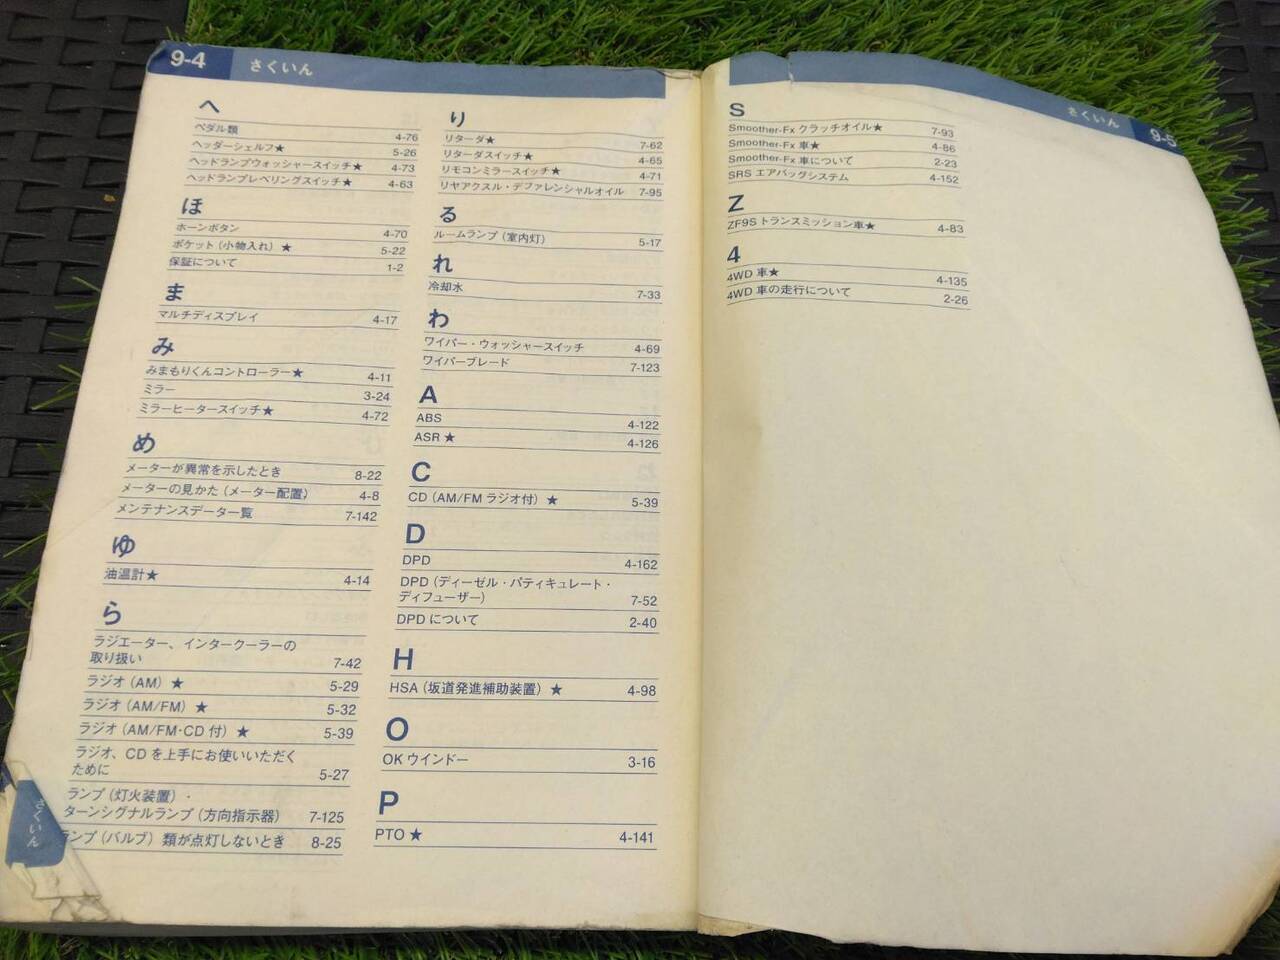 9-4 さくいん
へ
ペダル類 4-76
ヘッダーシェルフ★ 5-26
ヘッドランプウォッシャースイッチ★ 4-73
ヘッドランプレベリングスイッチ★ 4-63
ほ
ホーンボタン 4-70
ポケット（小物入れ）★ 5-22
保証について 1-2
ま
マルチディスプレイ 4-17
み
みまもりくんコントローラー★ 4-11
ミラー 3-24
ミラーヒータースイッチ★ 4-72
め
メーターが異常を示したとき 8-22
メーターの見かた（メーター配置） 4-8
メンテナンスデータ一覧 7-142
ゆ
油温計★ 4-14
ら
ラジエーター、インタークーラーの
取り扱い 7-42
ラジオ（AM）★ 5-29
ラジオ（AM/FM）★ 5-32
ラジオ（AM/FM・CD付）★ 5-39
ラジオ、CDを上手にお使いいただく
ために 5-27
ランプ（灯火装置）・
ターンシグナルランプ（方向指示器） 7-125
ランプ（バルブ）類が点灯しないとき 8-25
さくいん
り
リターダ★ 7-62
リターダスイッチ★ 4-65
リモコンミラースイッチ★ 4-71
リヤアクスル・デファレンシャルオイル 7-95
る
ルームランプ（室内灯） 5-17
れ
冷却水 7-33
わ
ワイパー・ウォッシャースイッチ 4-69
ワイパーブレード 7-123
A
ABS 4-122
ASR★ 4-126
C
CD（AM/FMラジオ付）★ 5-39
D
DPD 4-162
DPD（ディーゼル・パティキュレート・
ディフューザー） 7-52
DPDについて 2-40
H
HSA（坂道発進補助装置）★ 4-98
O
OKウインドー 3-16
P
PTO★ 4-141
さくいん 9-5
S
Smoother-Fxクラッチオイル★ 7-93
Smoother-Fx車★ 4-86
Smoother-Fx車について 2-23
SRSエアバッグシステム 4-152
Z
ZF9Sトランスミッション車★ 4-83
4
4WD車★ 4-135
4WD車の走行について 2-26